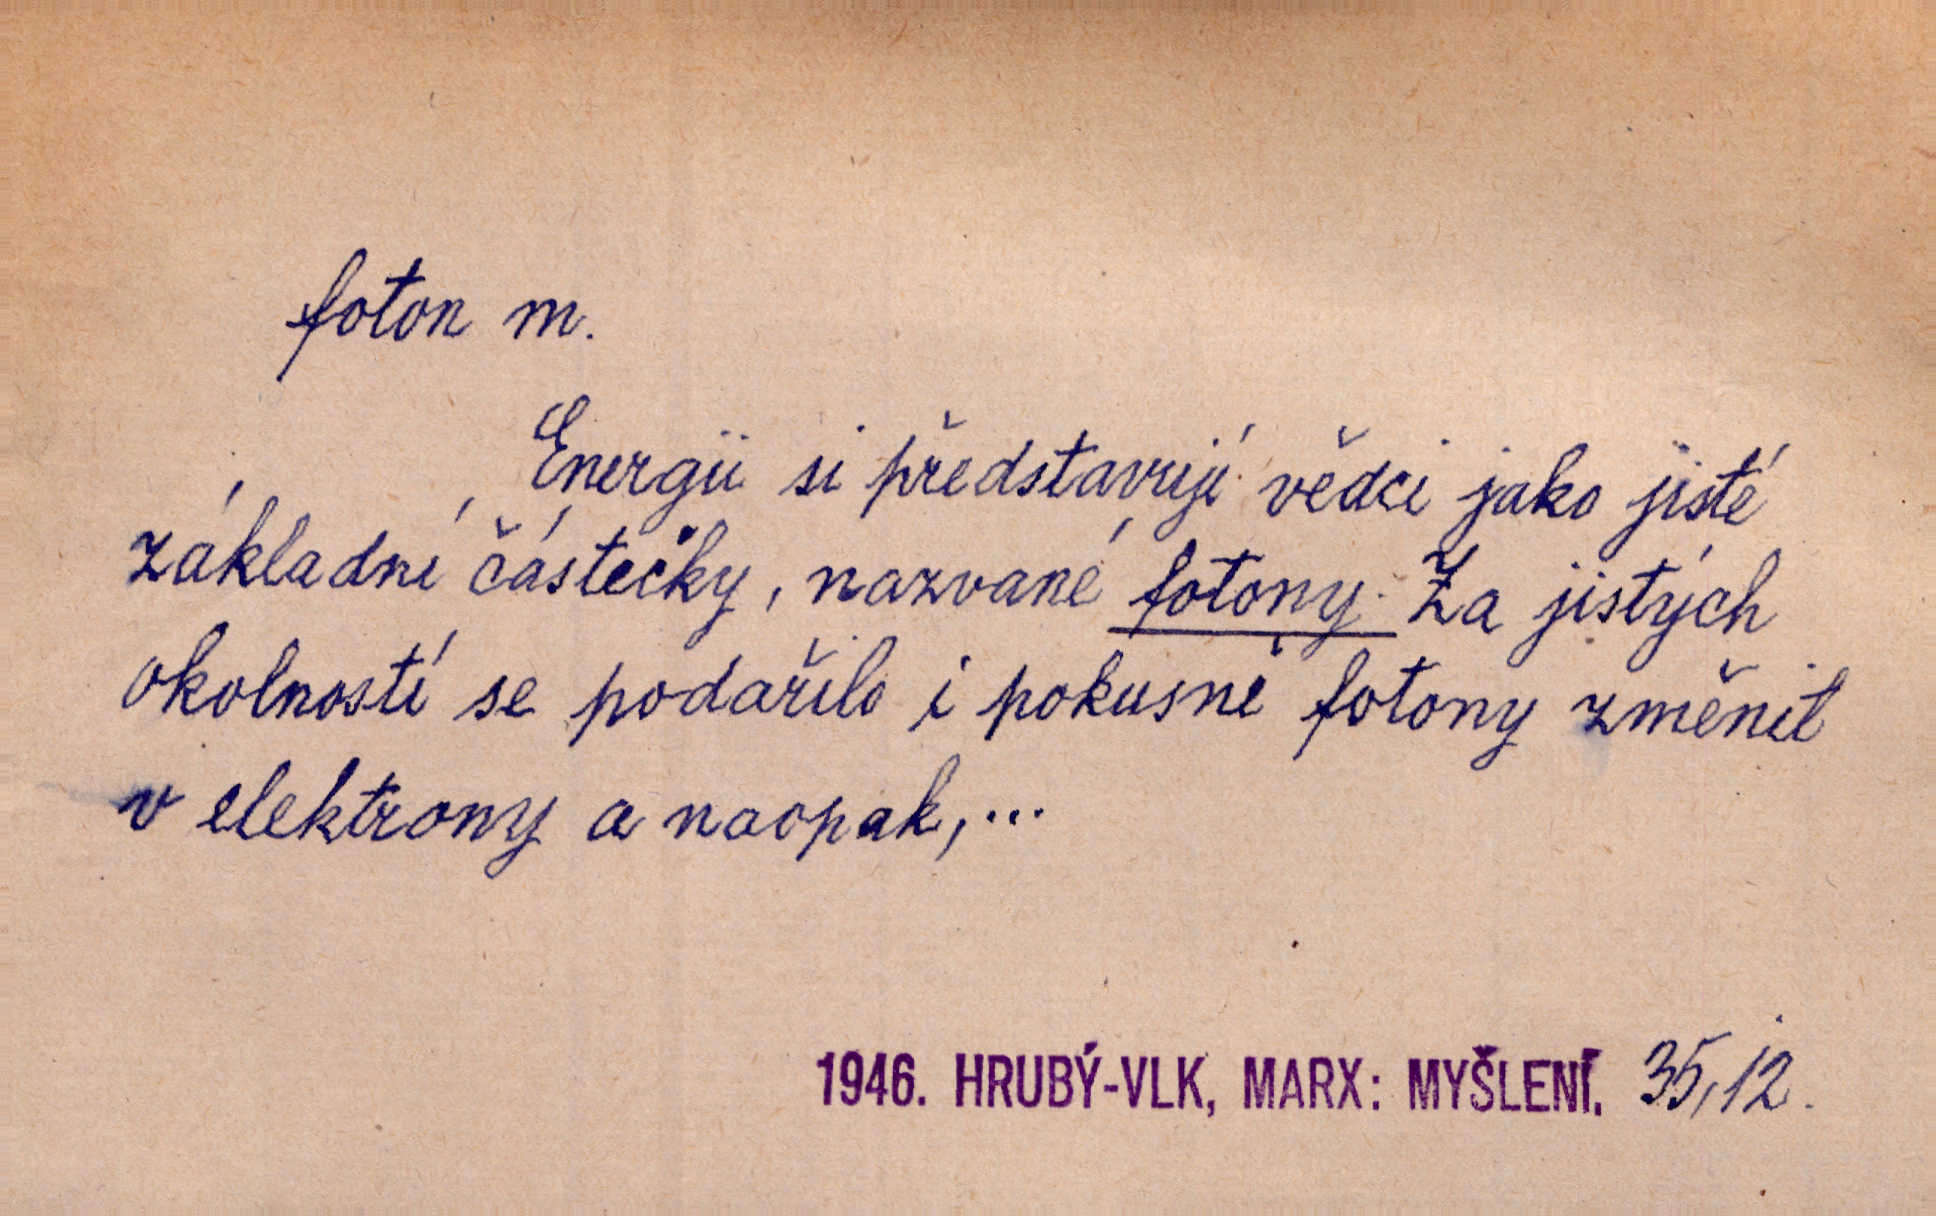 foton m.
Energii si představují vědci jako jisté
základní částečky, nazvané fotony. Za jistých
okolností se podařilo i pokusně fotony změnit
v elektrony a naopak,...
1946. HRUBÝ-VLK, MARX: MYŠLENÍ. 35,12.